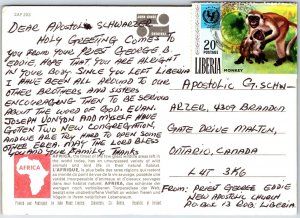 SAP 202
DEAR APOSTOLE SCHWARZER
HOLY GREETING COMES TO
YOU FROM YOUR PRIEST GEORGE B.
EDDIE, HOPE THAT YOU ARE ALRIGHT
IN YOUR BODY. SINCE YOU LEFT LIBERIA
I HAVE BEEN ALL AROUND TO OUR
OTHER BROTHERS AND SISTERS
ENCOURAGING THEN TO BE SERIOUS
ABOUT THE WORD OF GOD. EVAN.
JOSEPH VONYON AND MYSELF HAVE
GOTTEN TWO NEW CONGREGATION,
AND WE ARE TRY HARD TO OPEN SOME
OTHER AREA. MAY THE LORD BLESS
YOU AND YOUR FAMILY. THANKS
20c
LIBERIA
MONKEY
APOSTOLIC G. SCHW-
ARZER, 4309 BRANDON
GATE DRIVE MALTON,
ONTARIO, CANADA
L4T 3K6
FROM: PRIEST GEORGE EDDIE
NEW APOSTOLIC CHURCH
LIBERIA
AFRICA
AFRICA